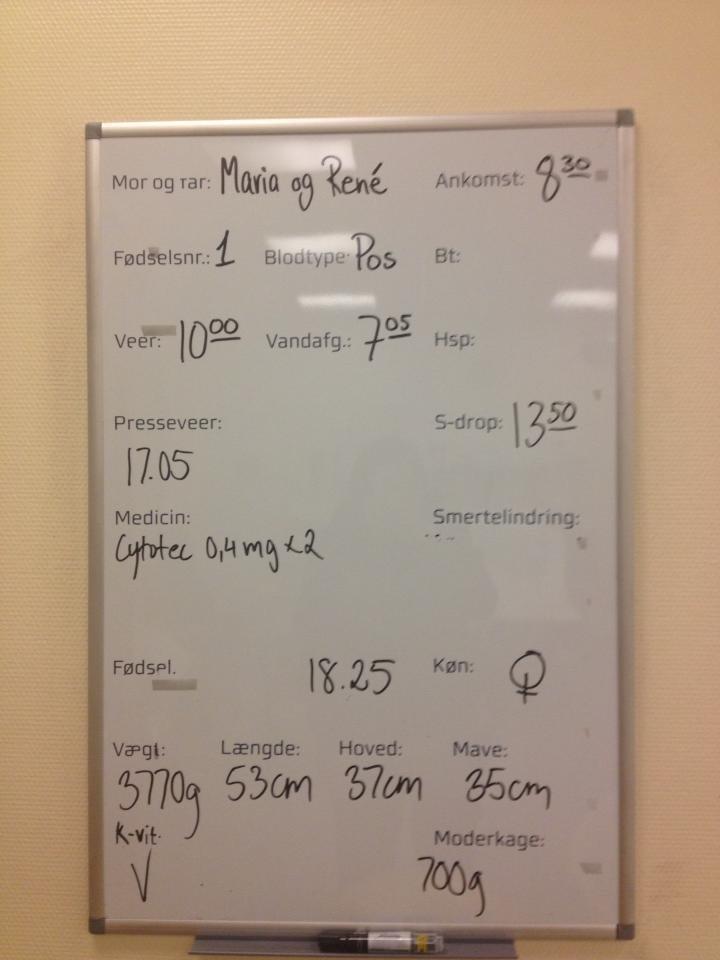 Mor og far: Maria og René Ankomst: 8 30
Fødselsnr.: 1 Blodtype: Pos Bt:
Veer: 10 00 Vandafg.: 7 05 Hsp:
Presseveer: S-drop: 13 50
17.05
Medicin: Smertelindring:
Cytotec 0,4 mg x2
Fødsel. 18.25 Køn: ♀
Vægt: Længde: Hoved: Mave:
3770g 53cm 37cm 35cm
K-vit. Moderkage:
V 700g